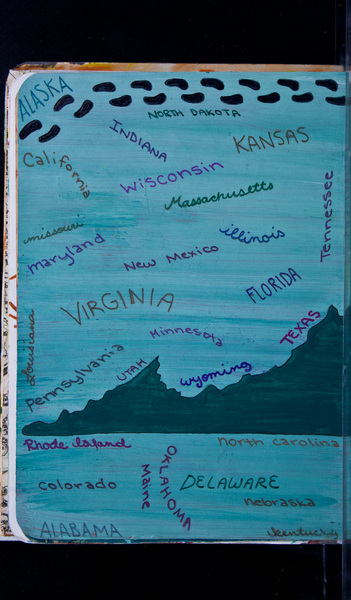 ALASKA
NORTH DAKOTA
INDIANA
KANSAS
California
Wisconsin
Massachusetts
Tennessee
missouri
illinois
maryland
New Mexico
FLORIDA
VIRGINIA
TEXAS
Minnesota
Louisiana
Pennsylvania
UTAH
wyoming
Rhode Island
north carolina
Colorado
Maine
OKLAHOMA
DELAWARE
nebraska
ALABAMA
kentucky